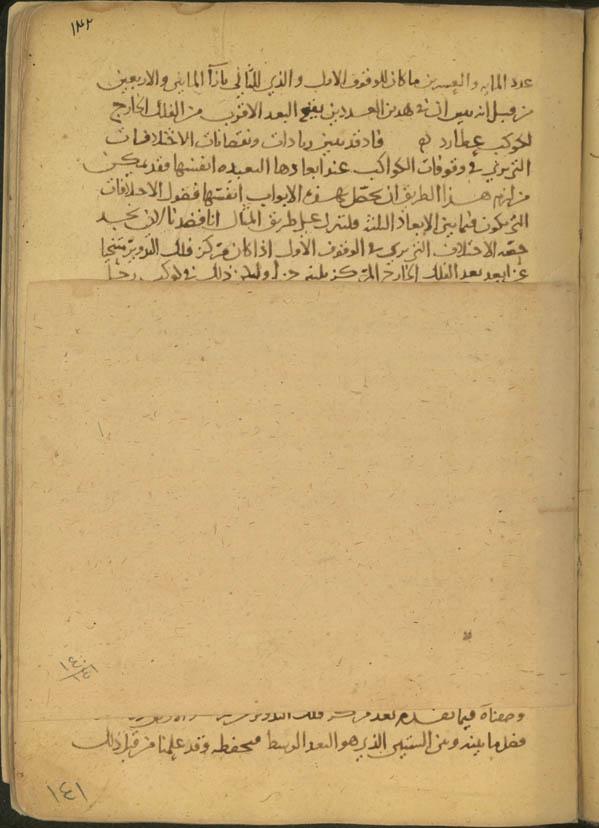 ١٤٢
عدد المايه والعسرين ما كان للوقوف الاول والذي للثاني بازآ المايتين والاربعين
من قبل انه تبين ان في هدين العددين يقع البعد الاقرب من الفلك الخارج
لكوكب عطارد فاذ قد تبين زيادات ونقصانات الاختلافات
التي ترى في وقوفات الكواكب عند ابعادها البعيده انفسها فقد يمكن
من لزم هذا الطريق ان يحصل بهذه الابواب انفسها فضول الاختلافات
التي تكون فيما بين الابعاد الثلثة فلننزل على طريق المثال انا قصدنا لان نجد
حصه الاختلاف التي ترى في الوقوف الاول اذا كان مركز فلك التدوير متنحيا
عن ابعد بعد الفلك الخارج المركز ثلثين جزأ وليكن ذلك في كوكب زحل
١٤٠
١٤١
وصفناه فيما تقدم بعد مركز فلك التدوير
فضل ما بينه وبين الستين الذي هو البعد الوسط فنحفظه وقد علمنا من قبل ذلك
١٤١